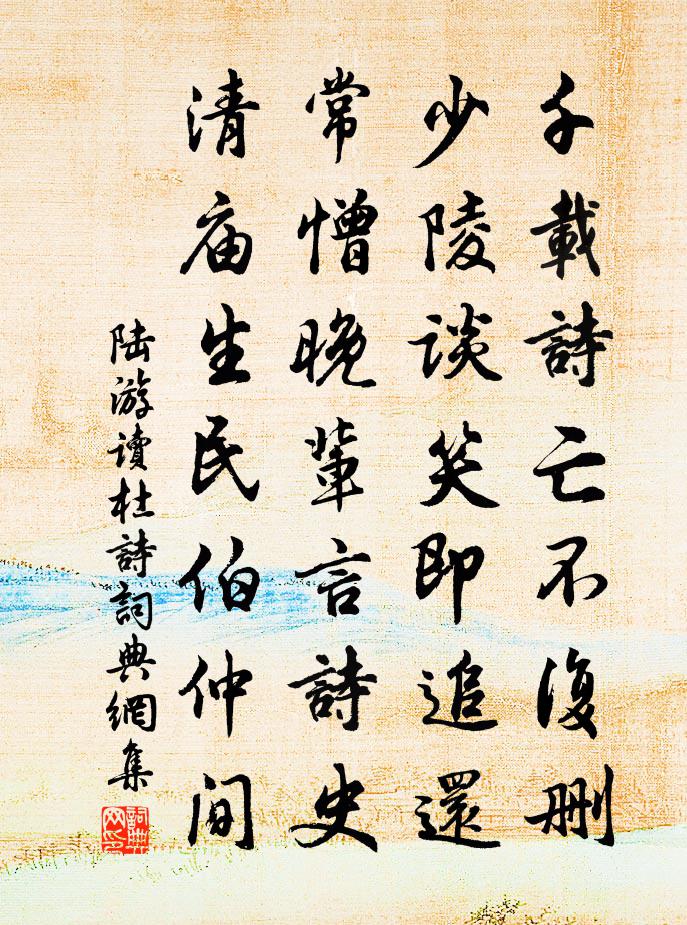 千載詩亡不復刪
少陵談笑即追還
常憎晚輩言詩史
清庙生民伯仲間
陆游讀杜詩詞典網集
詞典网印